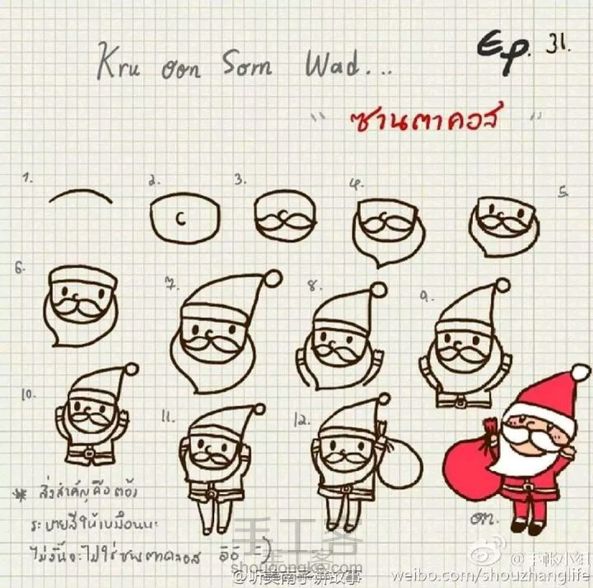 Kru oon Som Wad...
Ep. 31.
" ซานตาคอส "
1.
2.
3.
4.
5.
6.
7.
8.
9.
10.
11.
12.
* สิ่งสำคัญคือต้อง
ระบายสีให้เหมือนนะ
ไม่งั้นจะไม่ใช่ซานตาคลอส อิอิ =)
on.
手工客
shougongke.com
weibo.com/shouzhanglife